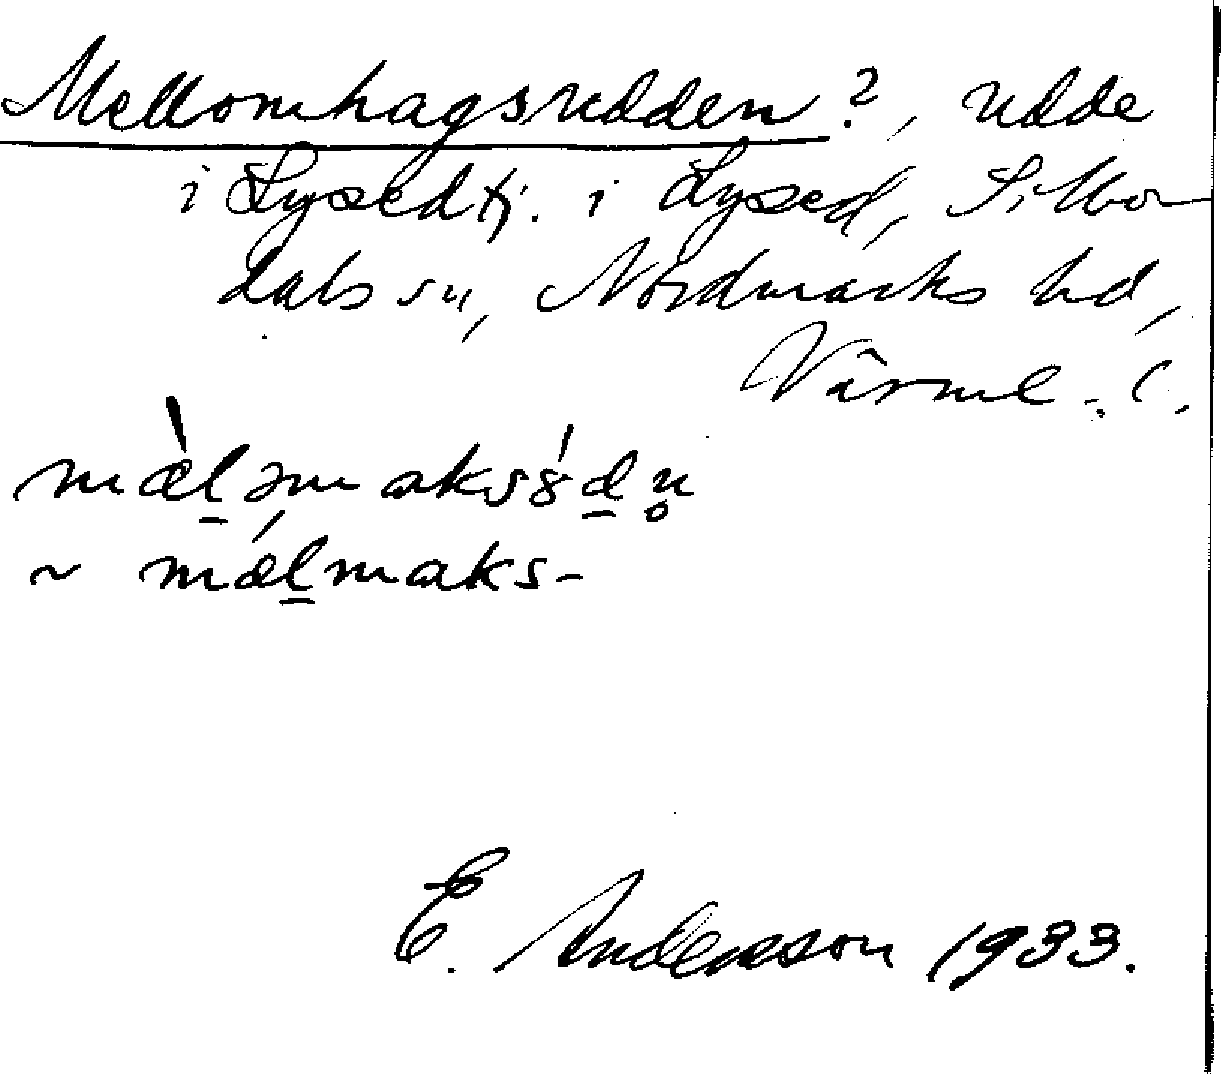 Mellomhagsudden?, udde
i Lysedtj. i Lysed, Silbo-
dals sn, Nordmarks hd,
Värml. l.
mæ̀l̠əmaksȣ́d̠n̥
~ mǽl̠maks-
E. Andersson 1933.